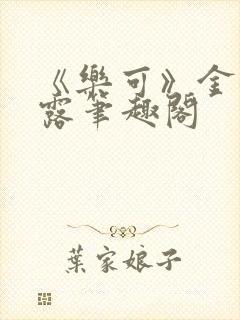 《樂可》金
露筆趣閣
葉家娘子